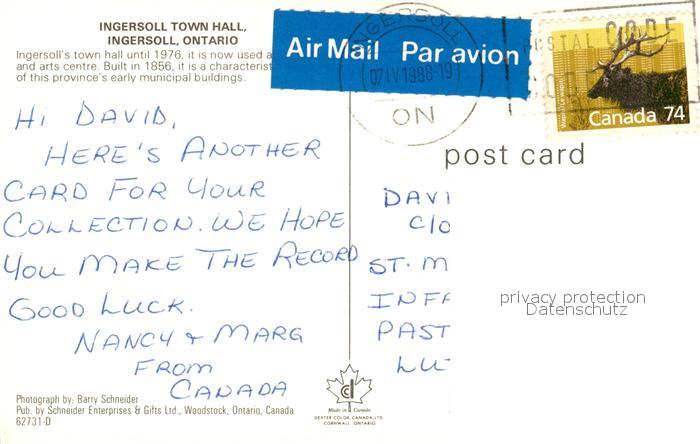 INGERSOLL TOWN HALL,
INGERSOLL, ONTARIO
Ingersoll's town hall until 1976, it is now used a
and arts centre. Built in 1856, it is a characterist
of this province's early municipal buildings.
Air Mail Par avion
INGERSOLL
07 IV 1988-19
ON
POSTAL CODE
Canada 74
post card
HI DAVID,
HERE'S ANOTHER
CARD FOR YOUR
COLLECTION. WE HOPE
YOU MAKE THE RECORD
GOOD LUCK.
NANCY & MARG
FROM
CANADA
DAVI
C/O
ST. M
INFA
PAST
LU
privacy protection
Datenschutz
Photograph by: Barry Schneider
Pub. by Schneider Enterprises & Gifts Ltd., Woodstock, Ontario, Canada
62731-D
Made in Canada
DEXTER COLOR, CANADA, LTD.
CORNWALL, ONTARIO